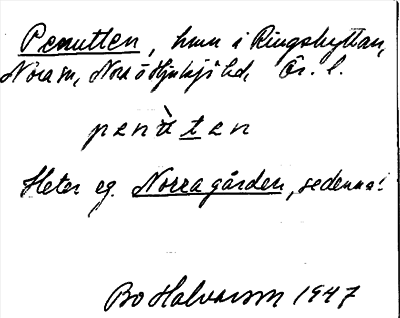 Penutten, hmn i Ringshyttan,
Nora sn, Nora o Hjulsjö hd, Ör. l.
penùten
Heter eg. Norra gården, se denna!
Bo Halvarson 1947